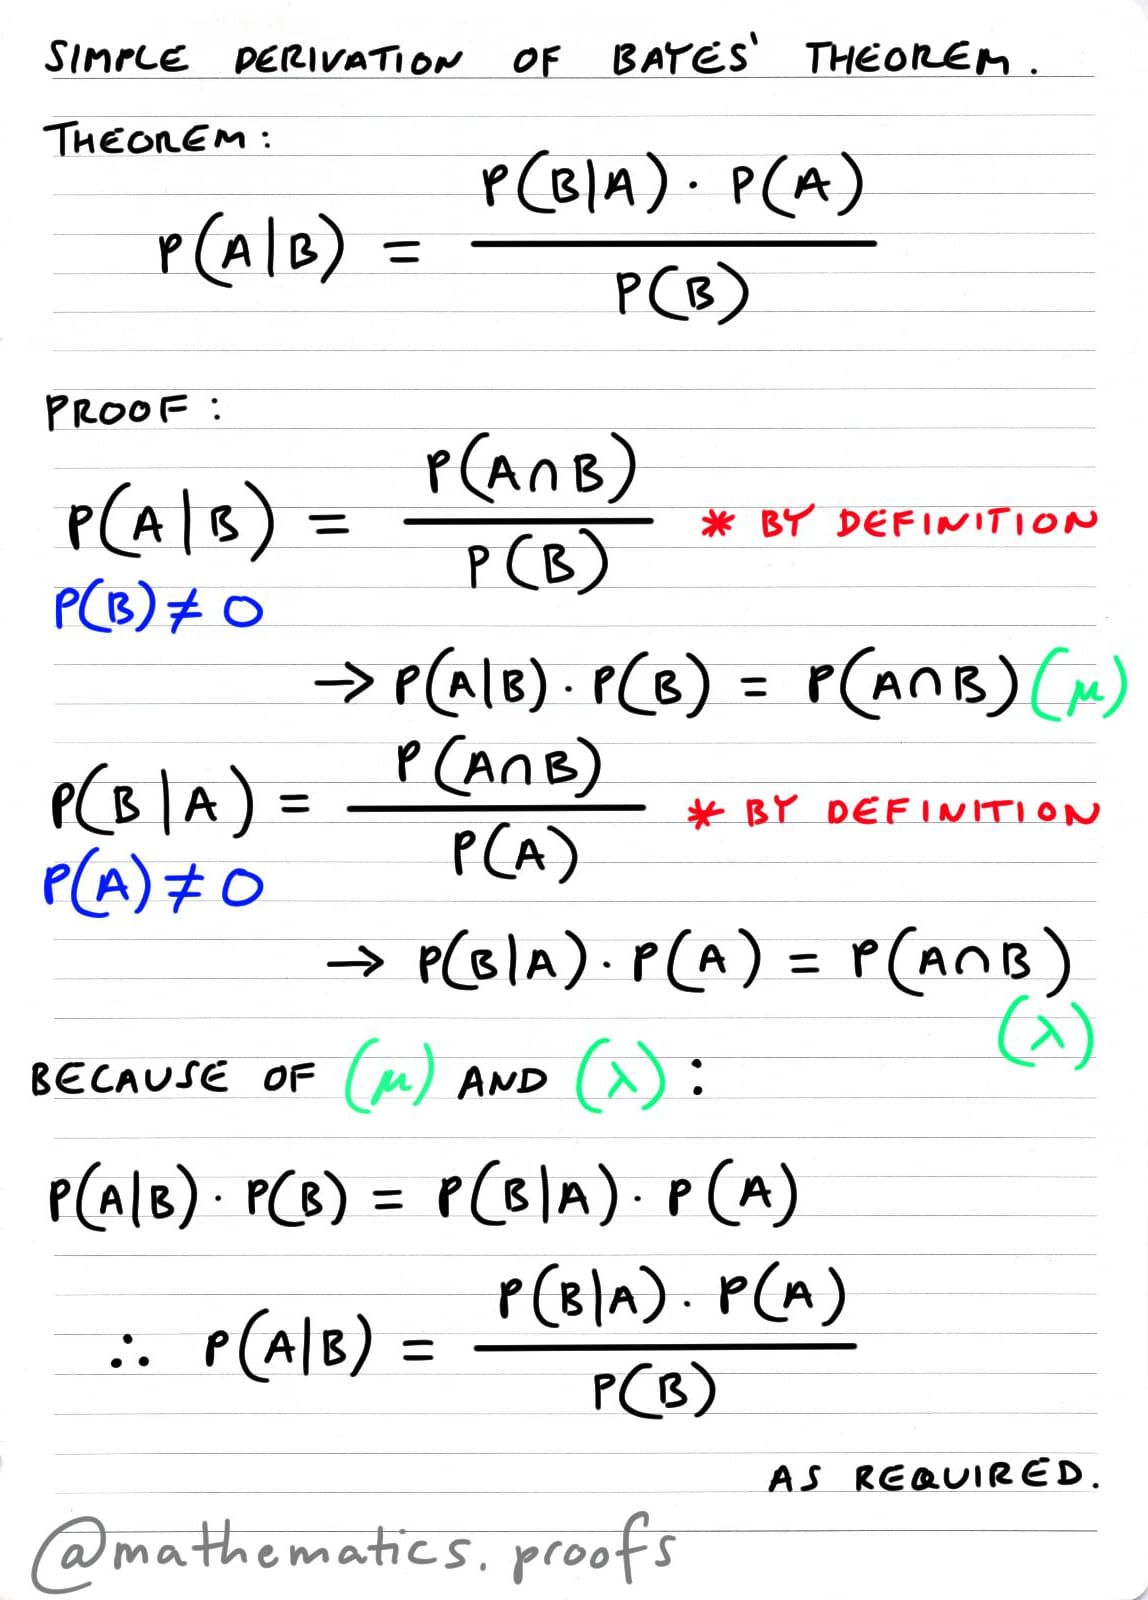 SIMPLE DERIVATION OF BAYES' THEOREM.
THEOREM:
P(A|B) = P(B|A) · P(A) / P(B)
PROOF:
P(A|B) = P(A∩B) / P(B) * BY DEFINITION
P(B) ≠ 0
→ P(A|B) · P(B) = P(A∩B) (μ)
P(B|A) = P(A∩B) / P(A) * BY DEFINITION
P(A) ≠ 0
→ P(B|A) · P(A) = P(A∩B)
(λ)
BECAUSE OF (μ) AND (λ):
P(A|B) · P(B) = P(B|A) · P(A)
∴ P(A|B) = P(B|A) · P(A) / P(B)
AS REQUIRED.
@mathematics.proofs